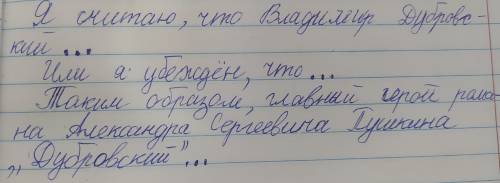 Я считаю, что Владимир Дубровс-
кий...
Или я убеждён, что...
Таким образом, главный герой рома-
на Александра Сергеевича Пушкина
„Дубровский”...